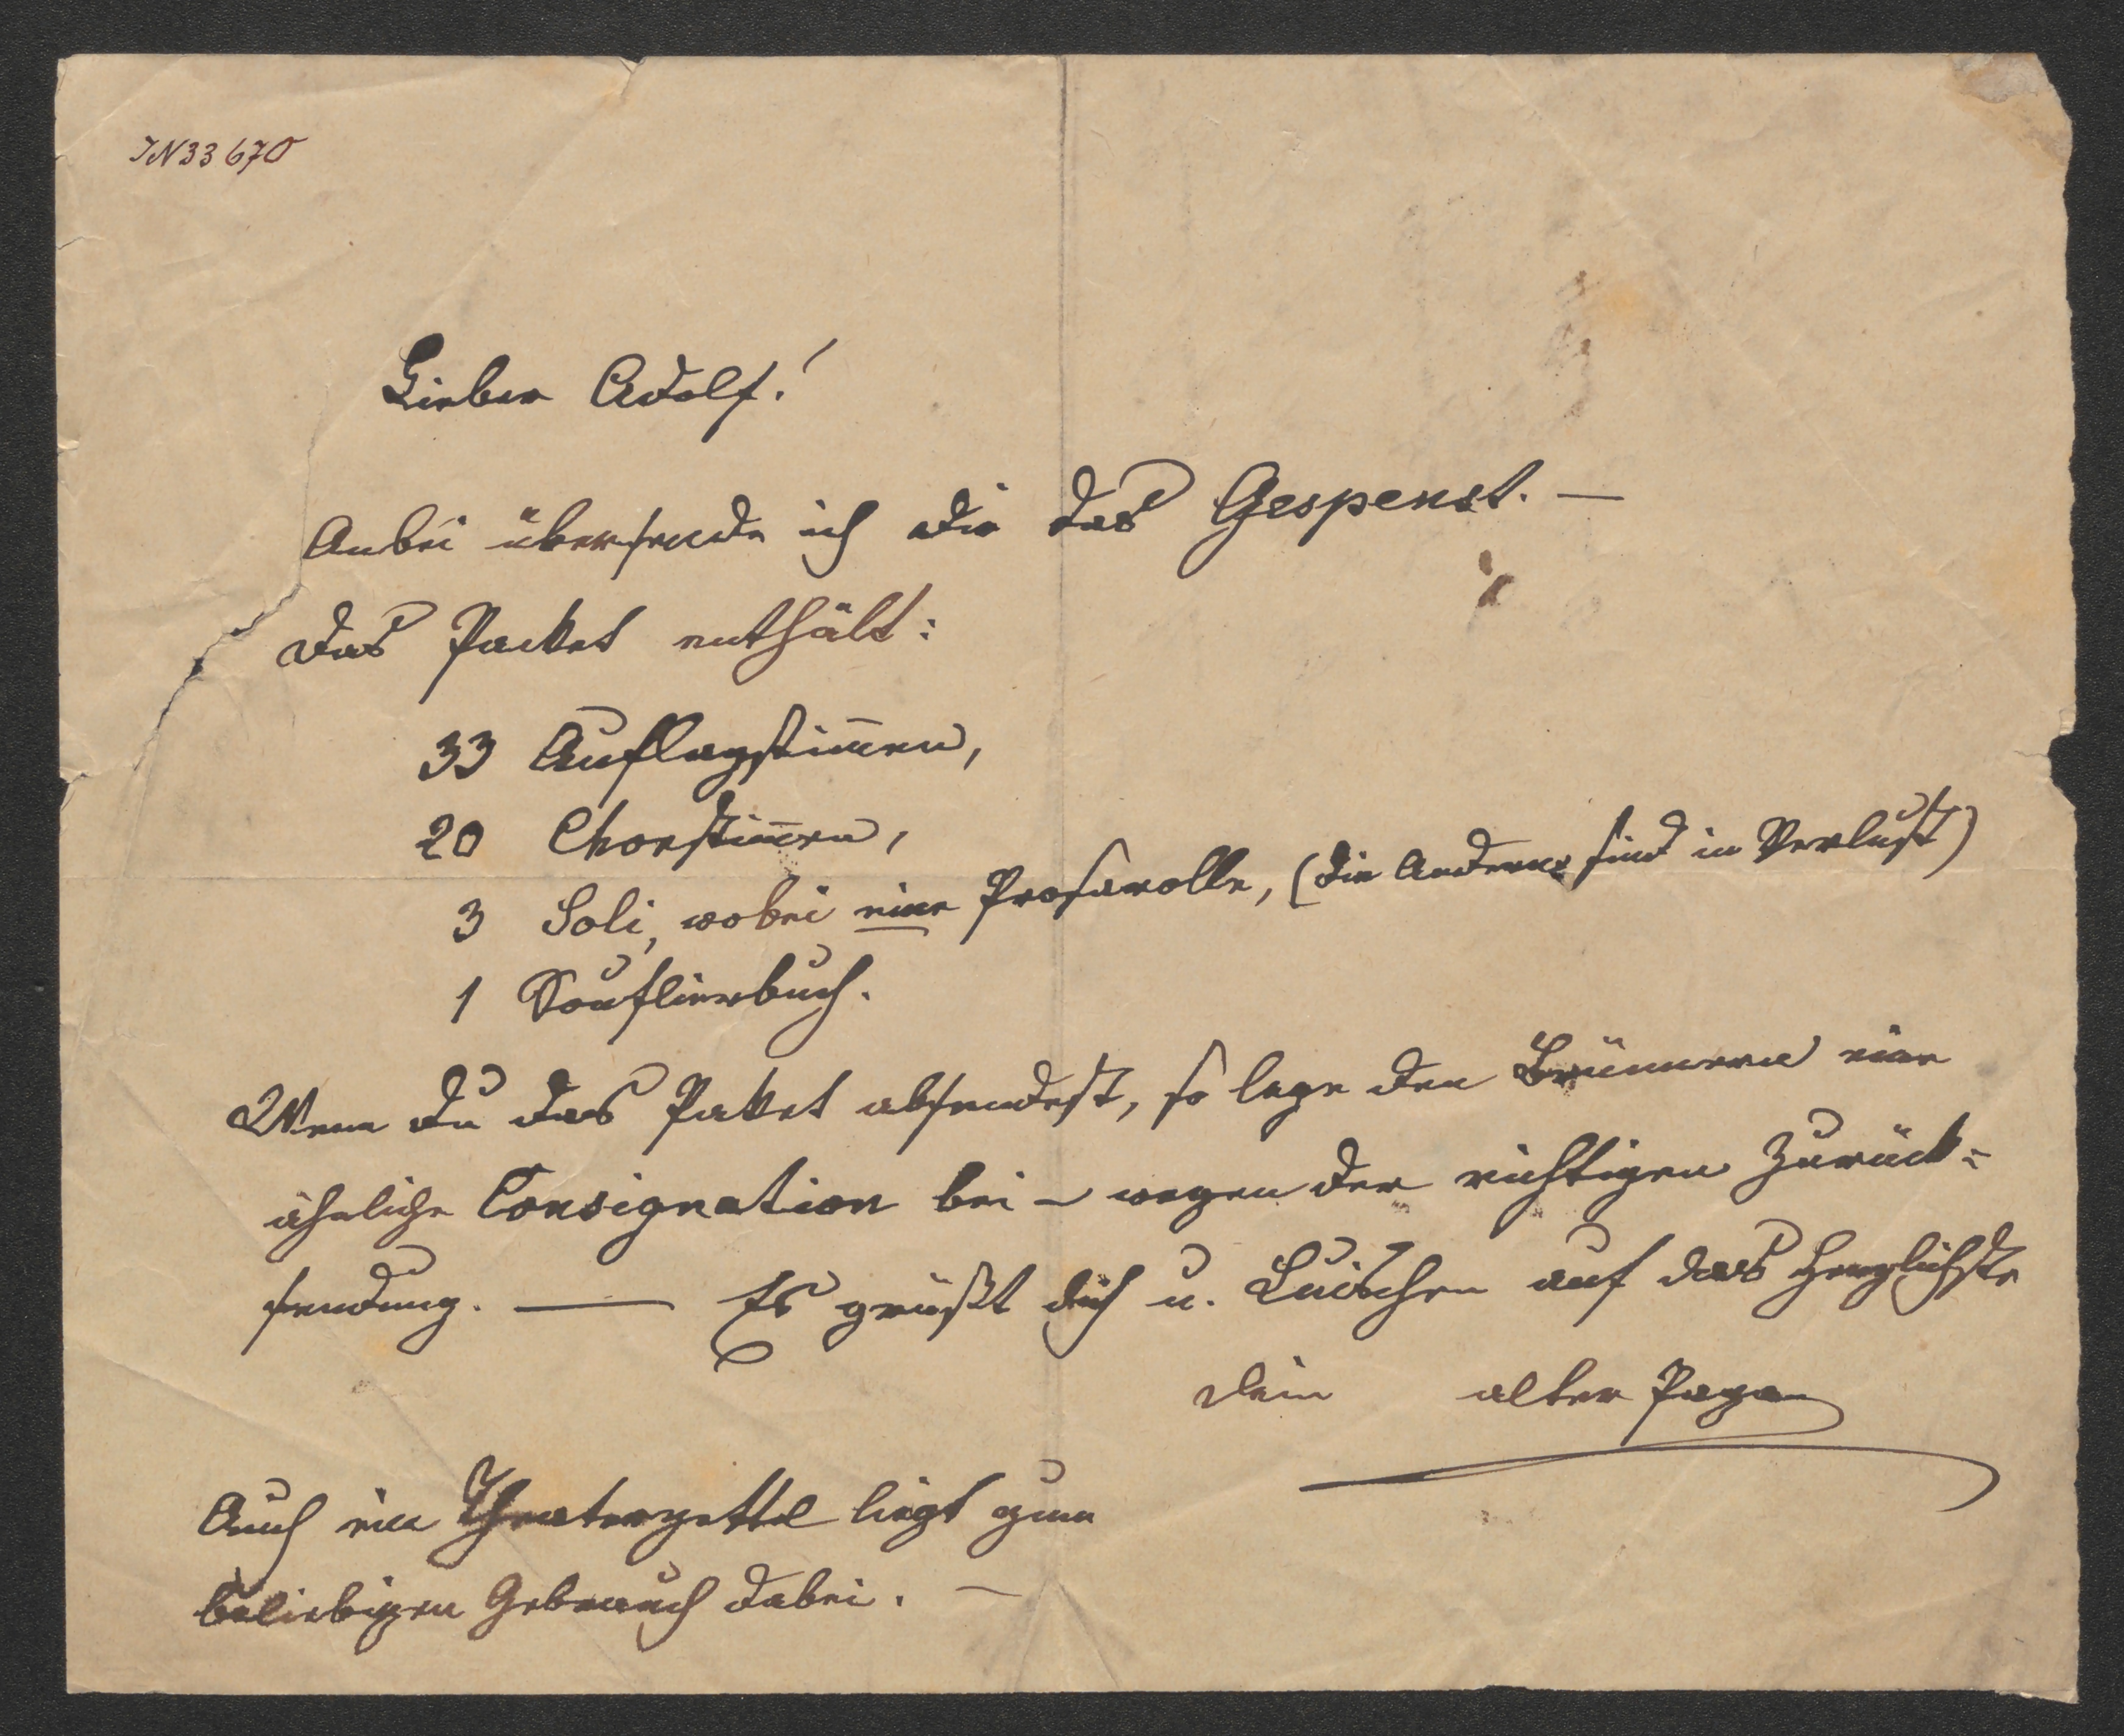 IN 33670
Lieber Adolf!
Anbei übersende ich dir das Gespenst. —
Das Packet enthält:
33 Auflagstim̅en,
20 Chorstim̅en,
3 Soli, wobei eine Prosarolle, (die Andern sind in Verlust)
1 Souflierbuch.
Wenn du das Paket absendest, so lege den Brünnern eine
ähnliche Consignation bei – wegen der richtigen Zurück=
sendung. — Es grüßt dich u. Luischen auf das Herzlichste
dein alter Papa
Auch ein Theaterzettel liegt zum
beliebigen Gebrauch dabei. —